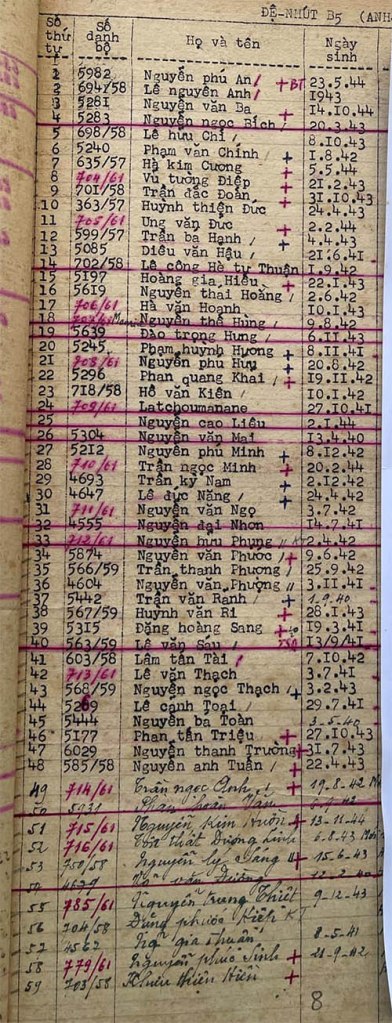 ĐỆ-NHỨT B5 (ANH
Số thứ tự Số danh bộ Họ và tên Ngày sinh
1 5982 Nguyễn phú An + BT 23.5.44
2 694/58 Lê nguyên Anh 1943
3 5281 Nguyễn văn Ba + 14.10.44
4 5283 Nguyễn ngọc Bích 20.3.43
5 698/58 Lê hữu Chí 8.10.43
6 5240 Phạm văn Chính + 1.8.42
7 635/57 Hà kim Cương + 5.5.44
8 704/61 Vũ tường Điệp + 21.2.43
9 701/58 Trần đắc Đoàn 31.10.43
10 363/57 Huỳnh thiện Đức + 24.4.43
11 705/61 Ung văn Đức 2.2.44
12 599/57 Trần bá Hạnh + 4.4.43
13 5085 Diêu văn Hậu 21.6.41
14 702/58 Lê công Hê tự Thuận 1.9.42
15 5197 Hoàng gia Hiếu + 22.1.43
16 5619 Nguyễn thai Hoàng 2.6.42
17 706/61 Hà văn Hoanh 10.1.43
18 Nguyễn thế Hùng 9.8.42
19 5639 Đào trọng Hưng 6.11.43
20 5245 Phạm huỳnh Hương + 8.11.41
21 708/61 Nguyễn phú Hựu + 20.8.42
22 5296 Phan quang Khai + 19.11.42
23 718/58 Hồ văn Kiên 10.1.42
24 709/61 Latchoumanane 27.10.41
25 Nguyễn cao Liêu 2.1.44
26 5304 Nguyễn văn Mai 13.4.40
27 5212 Nguyễn phú Minh + 8.12.42
28 710/61 Trần ngọc Minh + 20.2.44
29 4693 Trần kỳ Nam 2.12.42
30 4647 Lê đức Năng + 24.4.42
31 711/61 Nguyễn văn Ngọ 3.7.42
32 4555 Nguyễn đại Nhơn 14.7.41
33 712/61 Nguyễn hữu Phụng KT 2.4.42
34 5874 Nguyễn văn Phước + 9.6.42
35 566/59 Trần thanh Phương 25.9.42
36 4604 Nguyễn văn Phượng 3.11.41
37 5442 Trần văn Rạnh + 1.9.40
38 567/59 Huỳnh văn Ri + 28.1.43
39 5315 Đặng hoàng Sang + 19.3.41
40 563/59 Lê văn Sáu 13/9/41
41 603/58 Lâm tấn Tài 7.10.42
42 713/61 Lê văn Thạch 3.7.41
43 568/59 Nguyễn ngọc Thạch + 3.2.43
44 5269 Lê cảnh Toại 29.7.41
45 5444 Nguyễn bá Toàn 3.5.40
46 5177 Phan tấn Triệu + 27.10.43
47 6029 Nguyễn thanh Trường + 31.7.43
48 585/58 Nguyễn anh Tuấn + 22.4.43
49 714/61 Trần ngọc Anh + 19-8-42
50 5931
51 715/61 Nguyễn kim Huôn + 13-11-44
52 716/61 Tôn thất Dương 6.8.43
53 750/58 Nguyễn ly + 15-6-43
54 4639
55 785/61 Nguyễn trung Thiết 9-12-43
56 704/58 Đặng phước KT
57 4562 gia Thuần 8-5-41
58 779/61 Nguyễn phúc Sinh + 21-9-42
59 703/58 Khưu thiện Hiền +
8